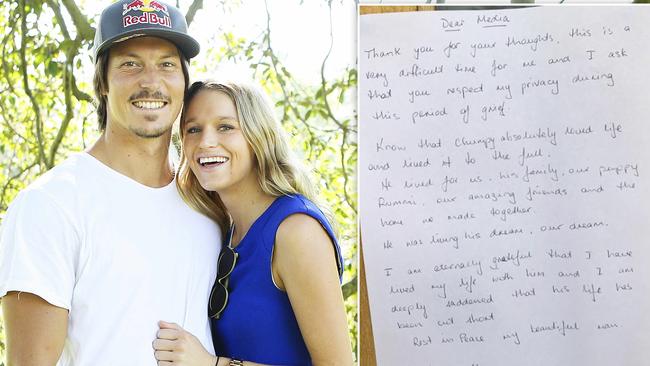 Red Bull
Dear Media
Thank you for your thoughts, this is a
very difficult time for me and I ask
that you respect my privacy during
this period of grief.
Know that Chumpy absolutely loved life
and lived it to the full.
He lived for us, his family, our puppy
Rummi, our amazing friends and the
home we made together.
He was living his dream, our dream.
I am eternally grateful that I have
lived my life with him and I am
deeply saddened that his life has
been cut short
Rest in Peace my beautiful man.